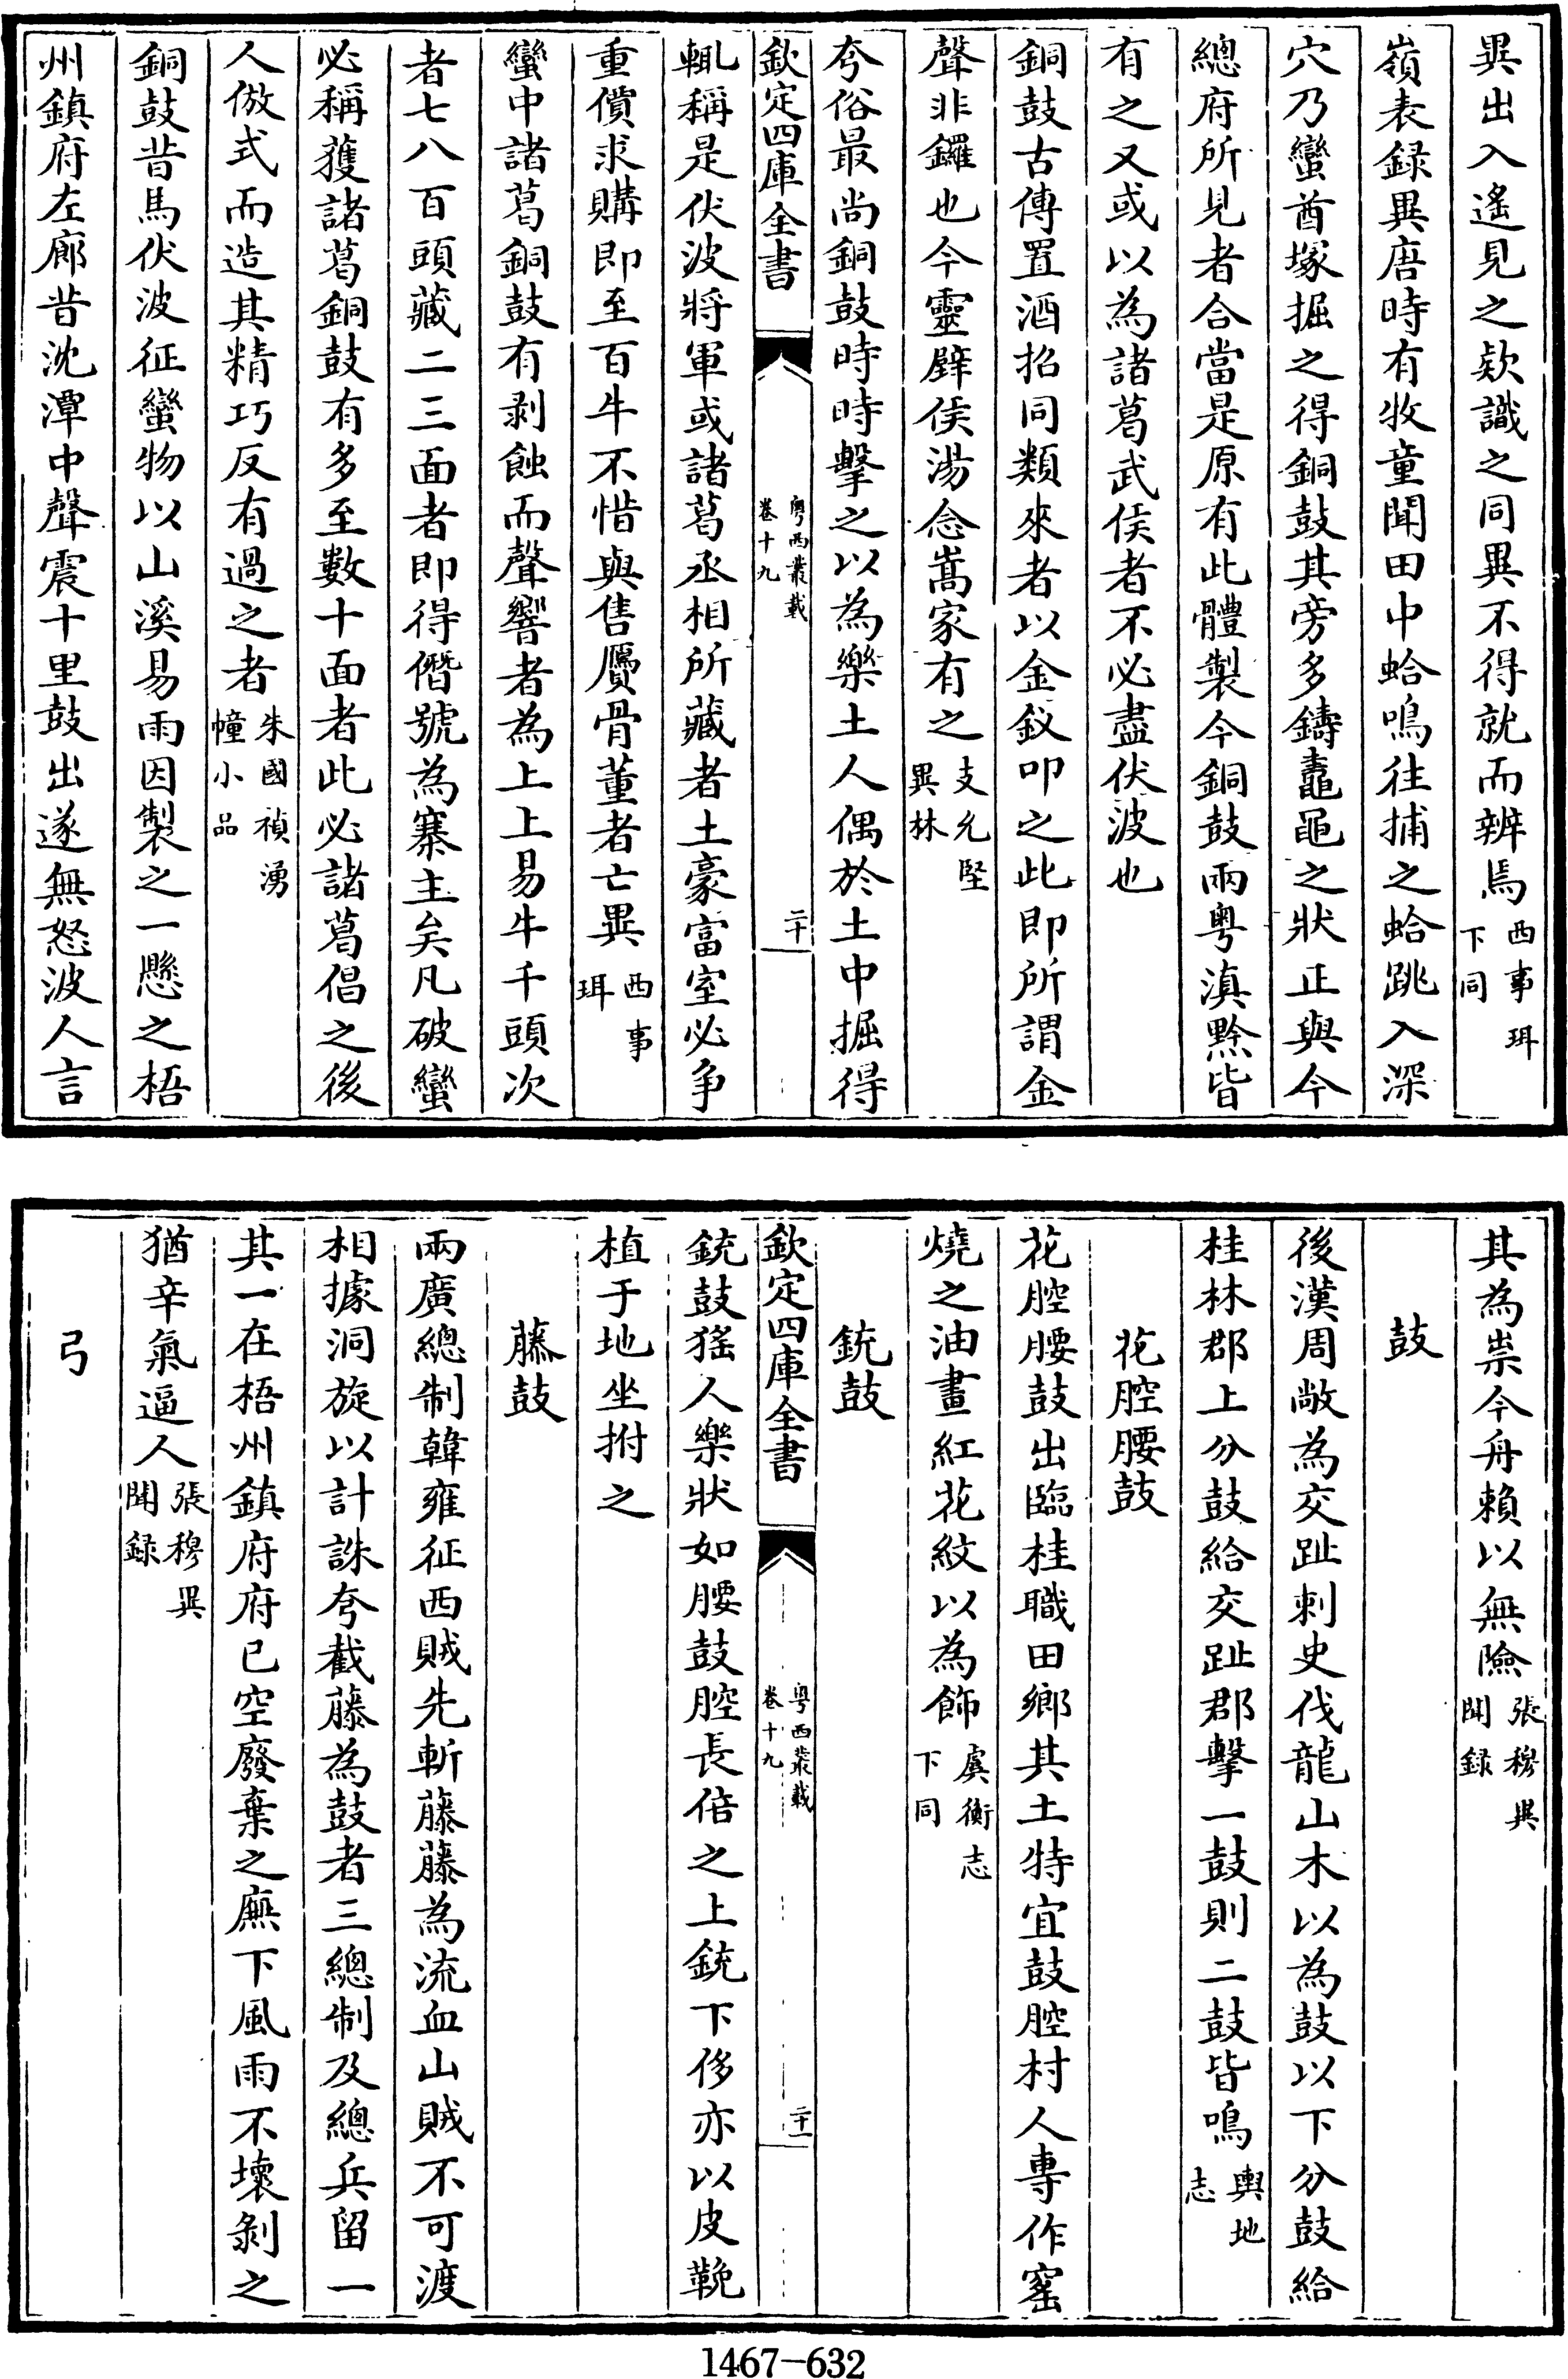 異出入遙見之欵識之同異不得就而辨焉西事珥下同
嶺表録異唐時有牧童聞田中蛤鳴往捕之蛤跳入深
穴乃蠻酋塚掘之得銅鼓其旁多鑄鼃黽之狀正與今
總府所見者合當是原有此體製今銅鼓兩粤滇黔皆
有之又或以為諸葛武侯者不必盡伏波也
銅鼓古傳置酒招同類來者以金釵叩之此即所謂金
聲非鑼也今靈壁侯湯念嵩家有之支允堅異林
夸俗最尚銅鼓時時擊之以為樂土人偶於土中掘得
欽定四庫全書
粤西叢載
卷十九
二十
輒稱是伏波將軍或諸葛丞相所藏者土豪富室必争
重償求購即至百牛不惜與售贗骨董者亡異西事珥
蠻中諸葛銅鼓有剥蝕而聲響者為上上易牛千頭次
者七八百頭藏二三面者即得僭號為寨主矣凡破蠻
必稱獲諸葛銅鼓有多至數十面者此必諸葛倡之後
人倣式而造其精巧反有過之者朱國禎湧幢小品
銅鼓昔馬伏波征蠻物以山溪易雨因製之一懸之梧
州鎮府左廊昔沈潭中聲震十里鼓出遂無怒波人言
其為祟今舟賴以無險張穆異聞録
鼓
後漢周敞為交趾刺史伐龍山木以為鼓以下分鼓給
桂林郡上分鼓給交趾郡擊一鼓則二鼓皆鳴輿地志
花腔腰鼓
花腔腰鼓出臨桂職田鄉其土特宜鼓腔村人專作窰
燒之油畫紅花紋以為飾虞衡志下同
銃鼓
欽定四庫全書
粤西叢載
卷十九
二十一
銃鼓猺人樂狀如腰鼓腔長倍之上銃下侈亦以皮鞔
植于地坐拊之
藤鼓
兩廣總制韓雍征西賊先斬藤藤為流血山賊不可渡
相據洞旋以計誅夸截藤為鼓者三總制及總兵留一
其一在梧州鎮府府已空廢棄之廡下風雨不壞剝之
猶辛氣逼人張穆異聞録
弓
1467-632